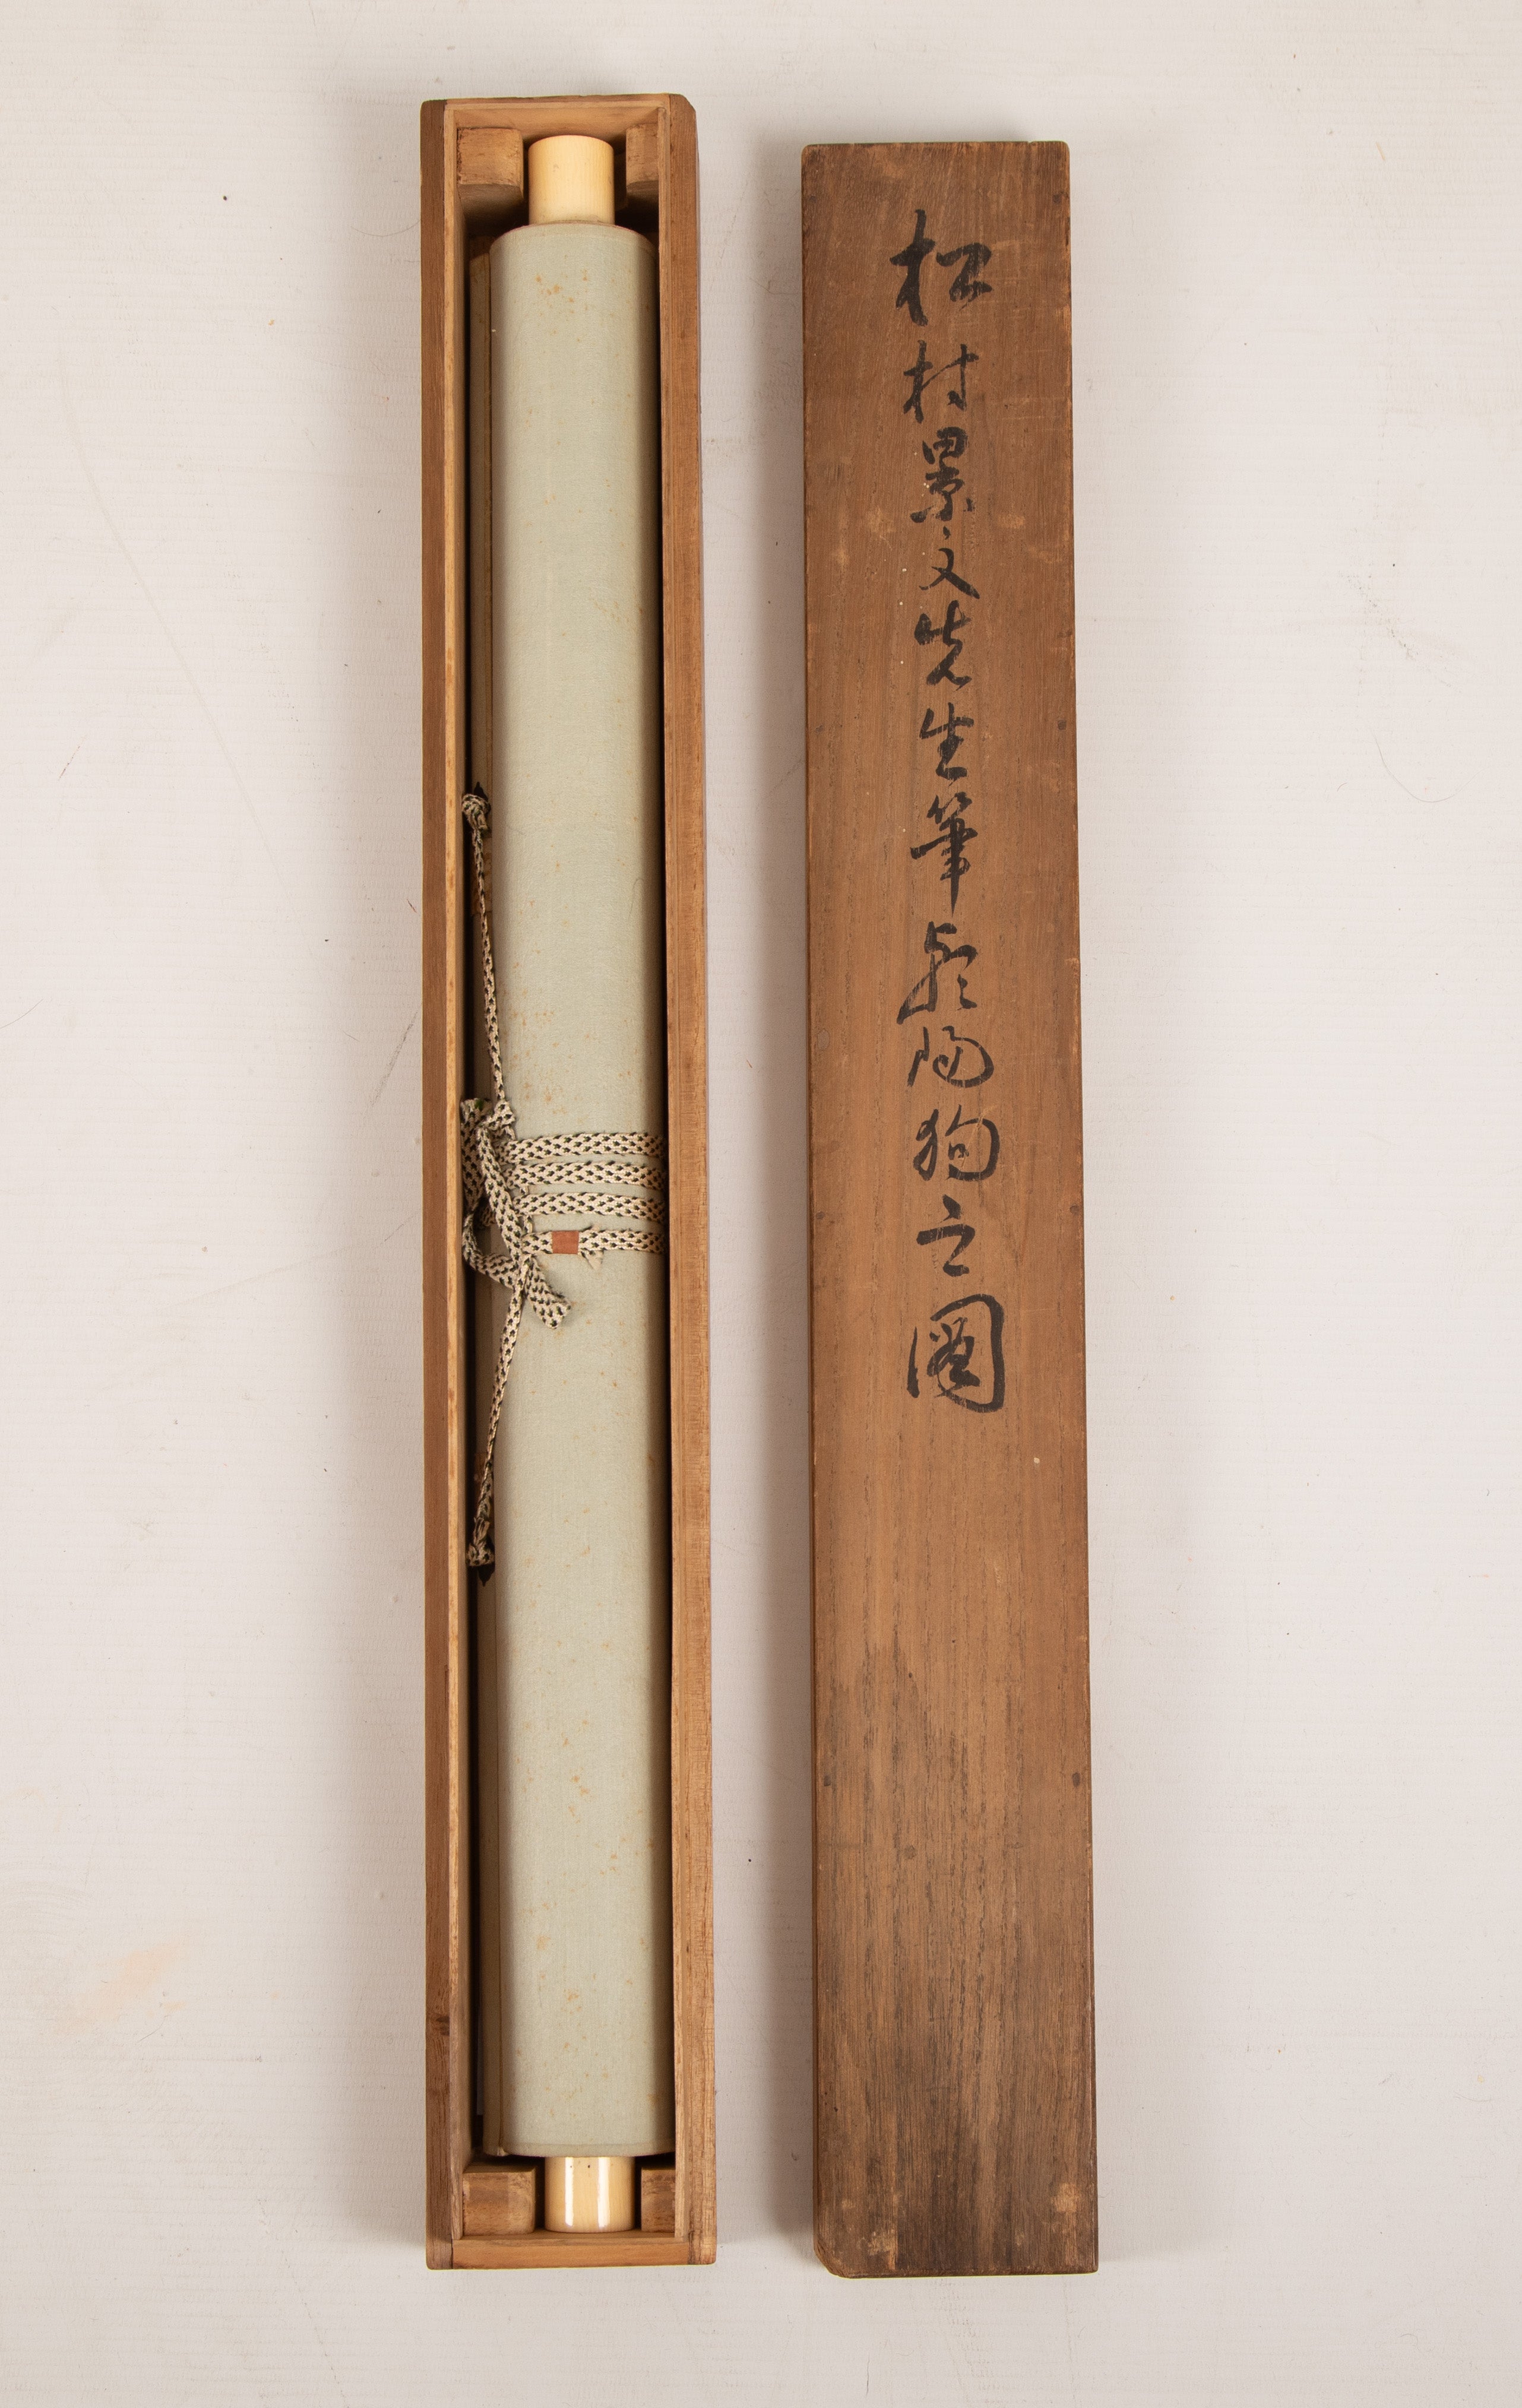 松村景文先生筆 陽狗之圖